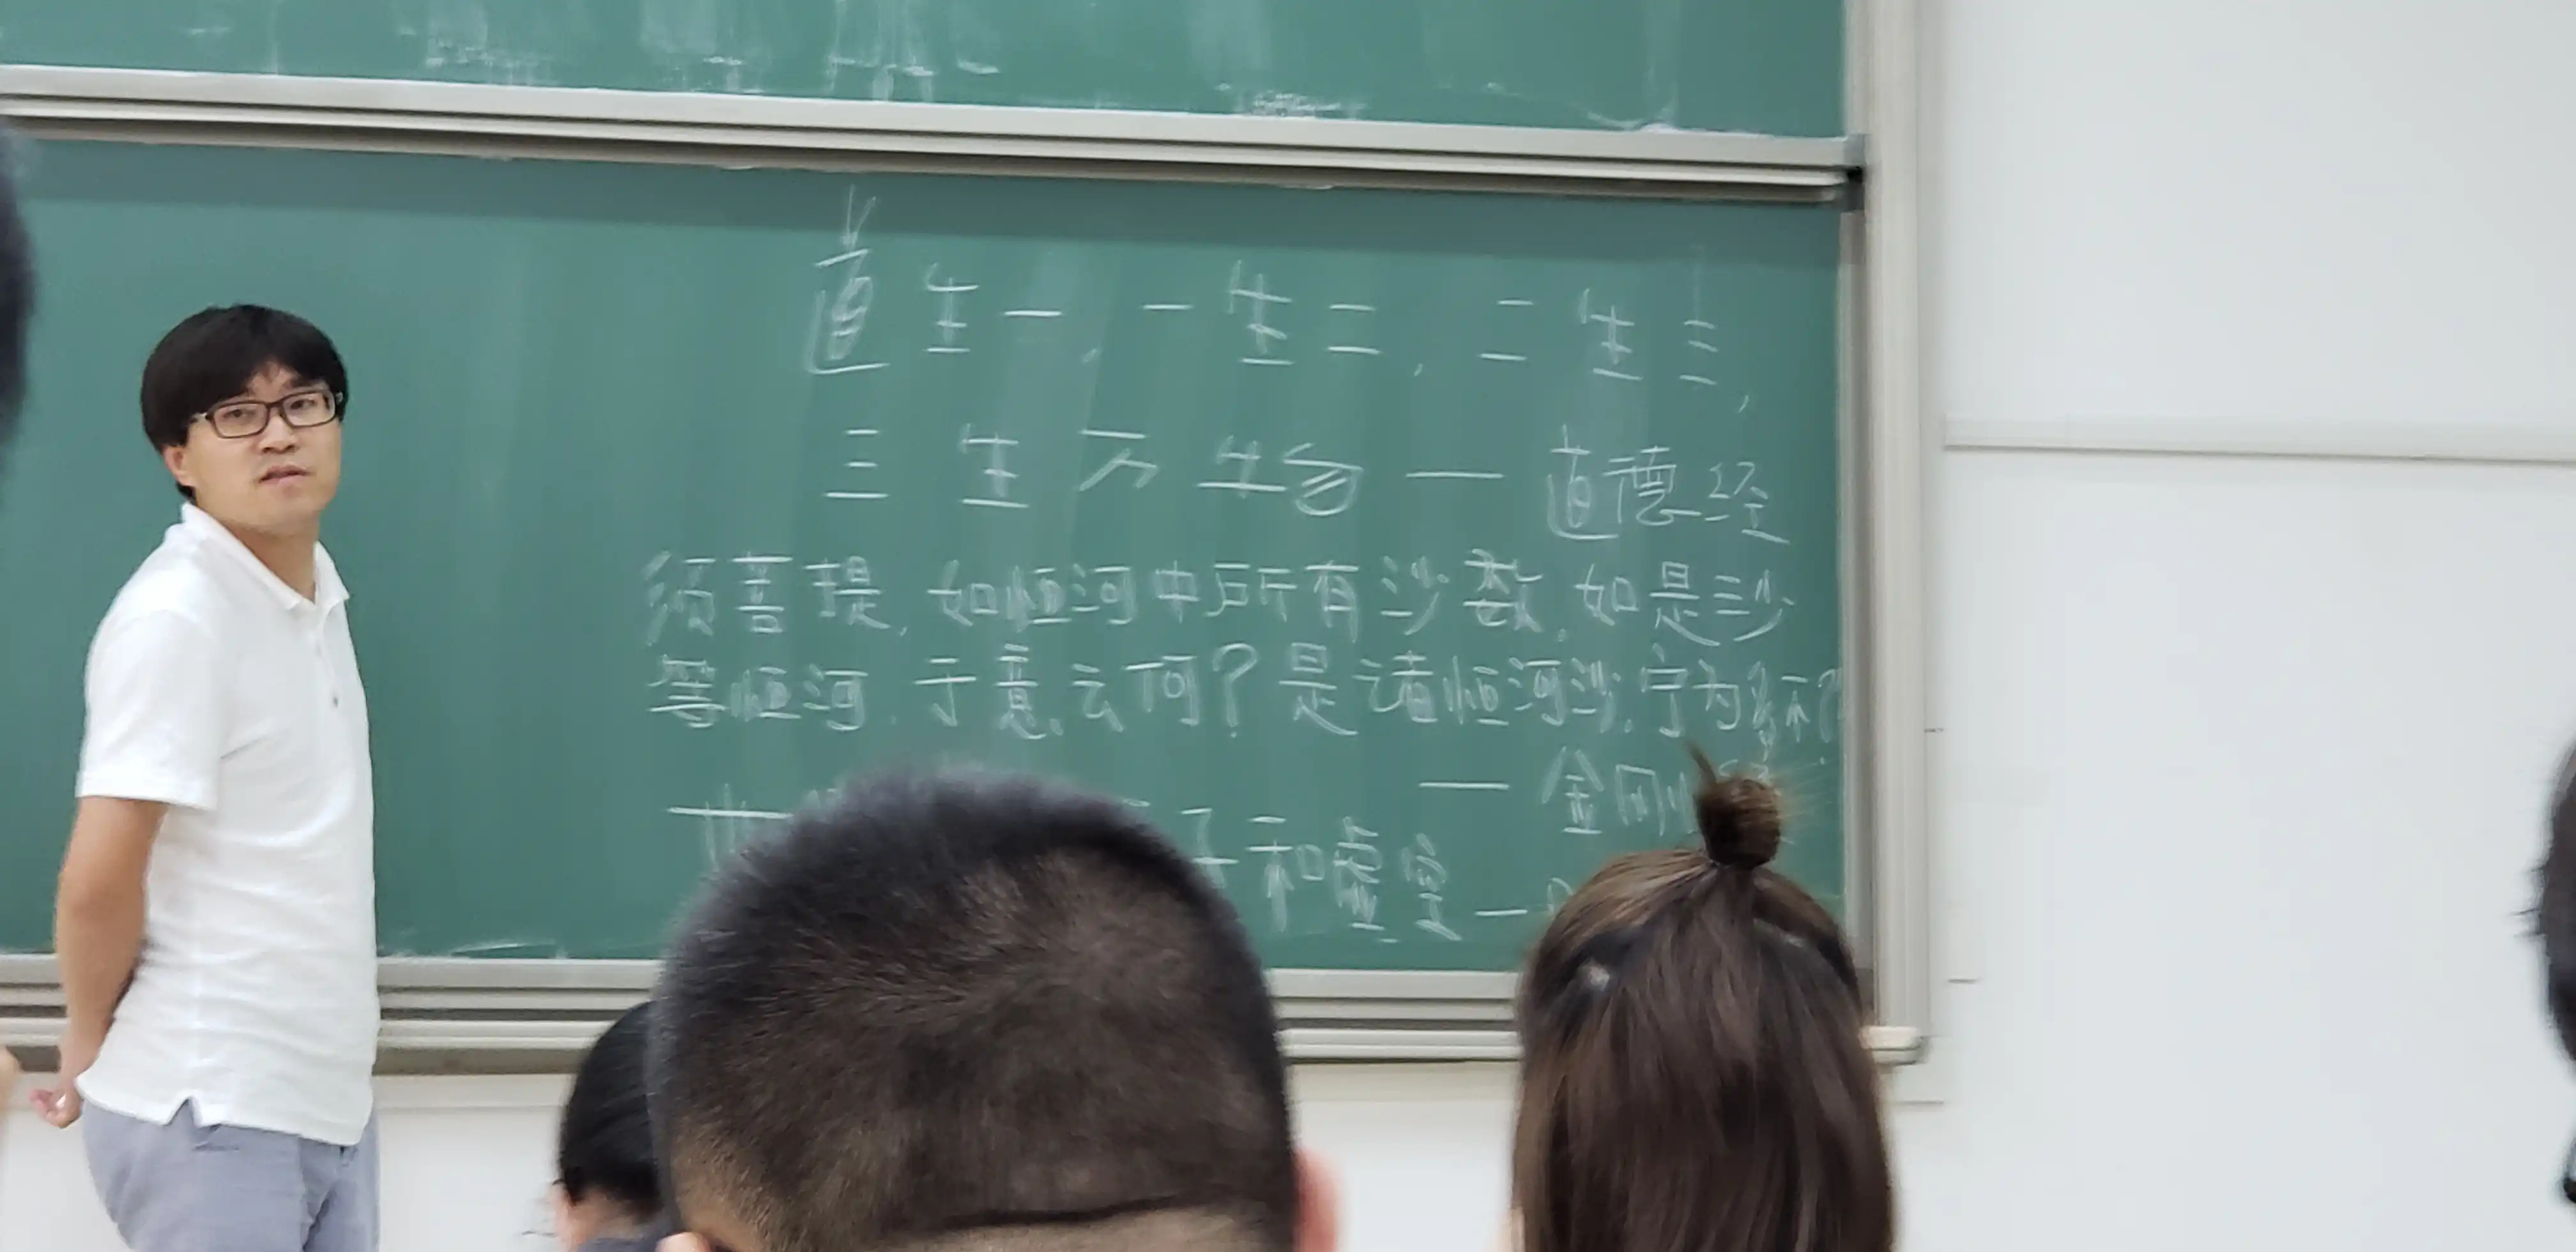 道生一，一生二，二生三，
三生万物 — 道德经
须菩提，如恒河中所有沙数，如是沙
等恒河，于意云何？是诸恒河沙，宁为多不？
— 金刚
世 子和虚空 —